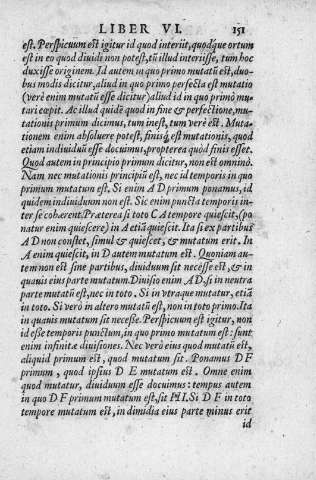 LIBER VI. 151
est. Perspicuum est igitur id quod interiit, quodq́ue ortum
est in eo quod diuidi non potest, tũ illud interiisse, tum hoc
duxisse originem. Id autem in quo primo mutatũ est, duo-
bus modis dicitur, aliud in quo primo perfecta est mutatio
(verè enim mutatũ esse dicitur) aliud id in quo primò mu-
tari cœpit. Ac illud quidẽ quod in fine & perfectione, mu-
tationis primum dicimus, tum inest, tum verè est. Muta-
tionem enim absoluere potest, finisq́; est mutationis, quod
etiam indiuiduũ esse docuimus, propterea quòd finii esset.
Quod autem in principio primum dicitur, non est omninò.
Nam nec mutationis principiũ est, nec id temporis in quo
primum mutatum est. Si enim A D primum ponamus, id
quidem indiuiduum non est. Sic enim puncta temporis in-
ter se cohærent. Præterea si toto C A tempore quiescit, (po
natur enim quiescere) in A etiã quiescit. Ita si ex partibus
A D non constet, simul & quiescet, & mutatum erit. In
A enim quiescit, in D autem mutatum est. Quoniam au-
tem non est sine partibus, diuiduum sit necesse est, & in
quauis eius parte mutatum. Diuiso enim A D, si in neutra
parte mutatũ est, nec in toto. Si in vtraque mutatur, etiã
in toto. Si verò in altero mutatũ est, non in toto primo. Ita
in quauis mutatum sit necesse. Perspicuum est igitur, non
id esse temporis punctum, in quo primo mutatum est: sunt
enim infinitæ diuisiones. Nec verò eius quod mutatũ est,
aliquid primum est, quod mutatum sit. Ponamus D F
primum, quod ipsius D E mutatum est. Omne enim
quod mutatur, diuiduum esse docuimus: tempus autem
in quo D F primum mutatum est, sit HI. Si D F in toto
tempore mutatum est, in dimidia eius parte minus erit
id